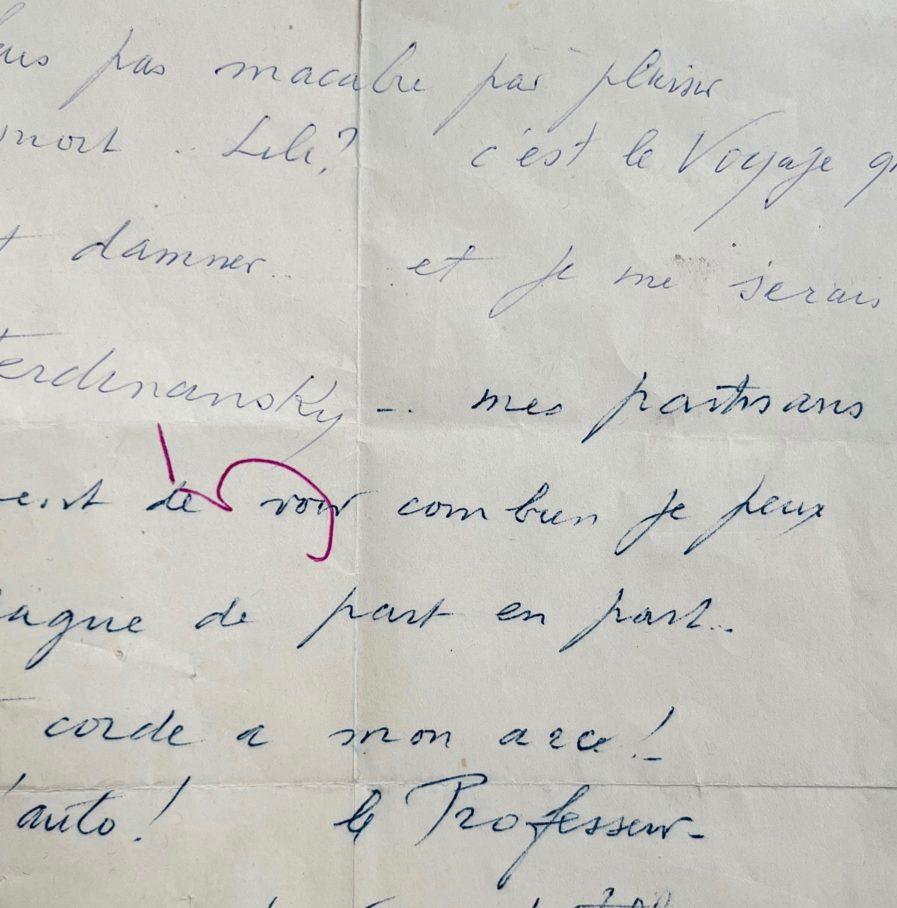 pas macabre par plaisir
mort . Lili? c'est le Voyage
damner.. et je me serais
Ferdinansky -.. mes partisans
de voir combien je peux
de part en part...
corde a mon arce!_
auto! le Professeur-